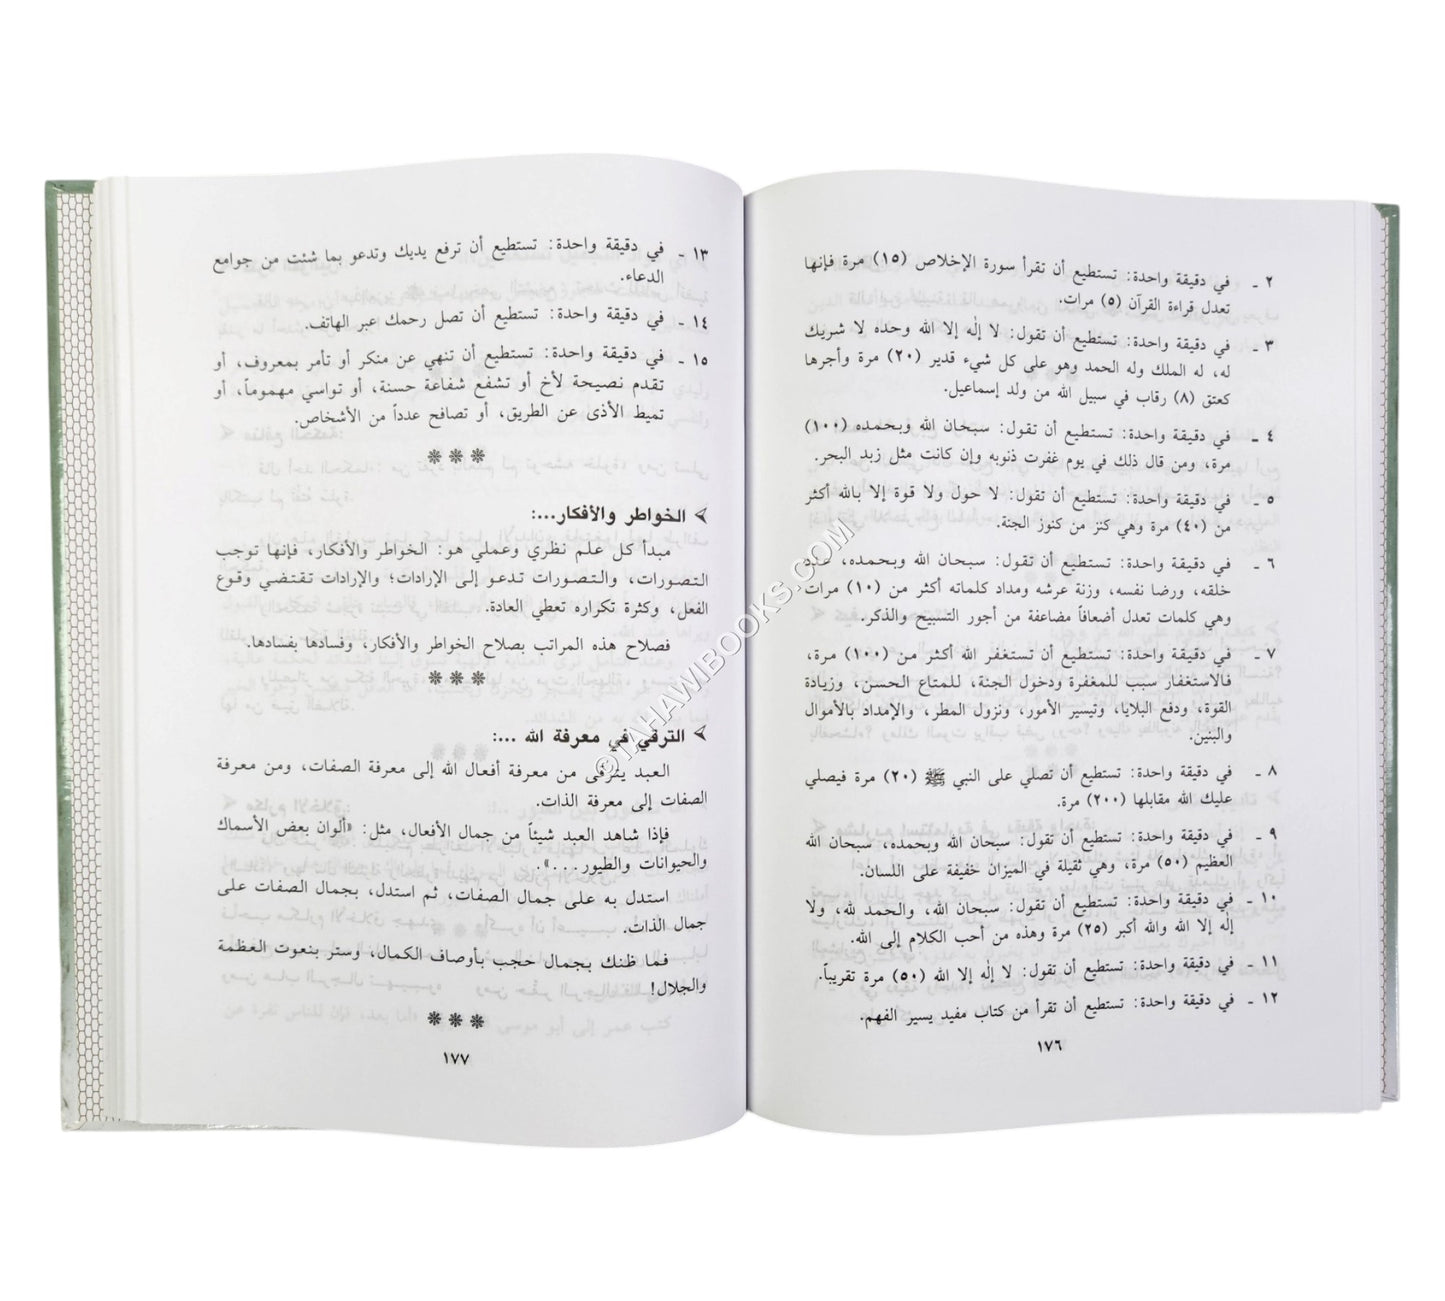 ٢ ـ في دقيقة واحدة: تستطيع أن تقرأ سورة الإخلاص (١٥) مرة فإنها
تعدل قراءة القرآن (٥) مرات.
٣ ـ في دقيقة واحدة: تستطيع أن تقول: لا إلٰه إلا الله وحده لا شريك
له، له الملك وله الحمد وهو على كل شيء قدير (٢٠) مرة وأجرها
كعتق (٨) رقاب في سبيل الله من ولد إسماعيل.
٤ ـ في دقيقة واحدة: تستطيع أن تقول: سبحان الله وبحمده (١٠٠)
مرة، ومن قال ذلك في يوم غفرت ذنوبه وإن كانت مثل زبد البحر.
٥ ـ في دقيقة واحدة: تستطيع أن تقول: لا حول ولا قوة إلا بالله أكثر
من (٤٠) مرة وهي كنز من كنوز الجنة.
٦ ـ في دقيقة واحدة: تستطيع أن تقول: سبحان الله وبحمده، عدد
خلقه، ورضا نفسه، وزنة عرشه ومداد كلماته أكثر من (١٠) مرات
وهي كلمات تعدل أضعافاً مضاعفة من أجور التسبيح والذكر.
٧ ـ في دقيقة واحدة: تستطيع أن تستغفر الله أكثر من (١٠٠) مرة،
فالاستغفار سبب للمغفرة ودخول الجنة، للمتاع الحسن، وزيادة
القوة، ودفع البلايا، وتيسير الأمور، ونزول المطر، والإمداد بالأموال
والبنين.
٨ ـ في دقيقة واحدة: تستطيع أن تصلي على النبي ﷺ (٢٠) مرة فيصلي
عليك الله مقابلها (٢٠٠) مرة.
٩ ـ في دقيقة واحدة: تستطيع أن تقول: سبحان الله وبحمده، سبحان الله
العظيم (٥٠) مرة، وهي ثقيلة في الميزان خفيفة على اللسان.
١٠ ـ في دقيقة واحدة: تستطيع أن تقول: سبحان الله، والحمد لله، ولا
إلٰه إلا الله والله أكبر (٢٥) مرة وهذه من أحب الكلام إلى الله.
١١ ـ في دقيقة واحدة: تستطيع أن تقول: لا إلٰه إلا الله (٥٠) مرة تقريباً.
١٢ ـ في دقيقة واحدة: تستطيع أن تقرأ من كتاب مفيد يسير الفهم.
١٧٦
١٣ ـ في دقيقة واحدة: تستطيع أن ترفع يديك وتدعو بما شئت من جوامع
الدعاء.
١٤ ـ في دقيقة واحدة: تستطيع أن تصل رحمك عبر الهاتف.
١٥ ـ في دقيقة واحدة: تستطيع أن تنهي عن منكر أو تأمر بمعروف، أو
تقدم نصيحة لأخ أو تشفع شفاعة حسنة، أو تواسي مهموماً، أو
تميط الأذى عن الطريق، أو تصافح عدداً من الأشخاص.
الخواطر والأفكار...:
مبدأ كل علم نظري وعملي هو: الخواطر والأفكار، فإنها توجب
التصورات، والتصورات تدعو إلى الإرادات؛ والإرادات تقتضي وقوع
الفعل، وكثرة تكراره تعطي العادة.
فصلاح هذه المراتب بصلاح الخواطر والأفكار، وفسادها بفسادها.
الترقي في معرفة الله ...:
العبد يترقى من معرفة أفعال الله إلى معرفة الصفات، ومن معرفة
الصفات إلى معرفة الذات.
فإذا شاهد العبد شيئاً من جمال الأفعال، مثل: «ألوان بعض الأسماك
والحيوانات والطيور...».
استدل به على جمال الصفات، ثم استدل، بجمال الصفات على
جمال الذات.
فما ظنك بجمال حجب بأوصاف الكمال، وستر بنعوت العظمة
والجلال!
١٧٧
©TAHAWIBOOKS.COM